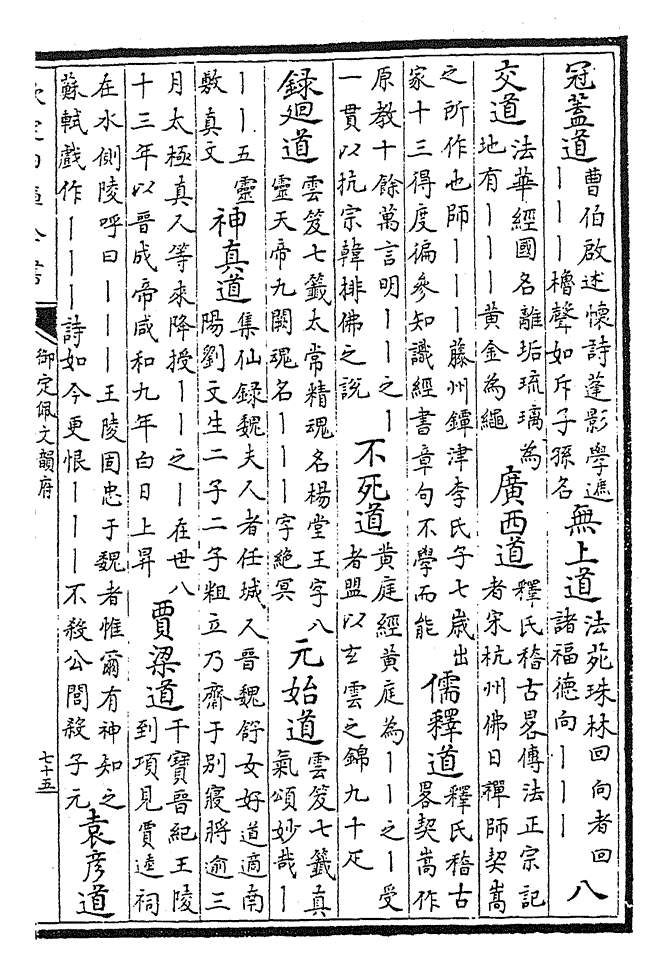 冠蓋道
曹伯啟述懷詩蓬影學遮
｜｜｜櫓聲如斥子孫名
無上道
法苑珠林回向者回
諸福德向｜｜｜
八
交道
法華經國名離垢琉璃為
地有｜｜｜黃金為繩
廣西道
釋氏稽古畧傳法正宗記
者宋杭州佛日禪師契嵩
之所作也師｜｜｜藤州鐔津李氏子七歲出
家十三得度徧參知識經書章句不學而能
儒釋道
釋氏稽古
畧契嵩作
原教十餘萬言明｜｜之｜
一貫以抗宗韓排佛之說
不死道
黃庭經黃庭為｜｜之｜受
者盟以玄雲之錦九十疋
録廻道
雲笈七籤太常精魂名楊堂王字八
靈天帝九闕瑰名｜｜｜字絶冥
元始道
雲笈七籤真
氣頌妙哉｜
｜｜五靈
敷真文
神真道
集仙録魏夫人者任城人晉魏舒女好道適南
陽劉文生二子二子粗立乃齋于別寢將逾三
月太極真人等來降授｜｜之｜在世八
十三年以晉成帝咸和九年白日上昇
賈梁道
干寶晉紀王陵
到項見賈逵祠
在水側陵呼曰｜｜｜王陵固忠于魏者惟爾有神知之
蘇軾戲作｜｜｜詩如今更恨｜｜｜不殺公閭殺子元
袁彦道
御定佩文韻府
七十五